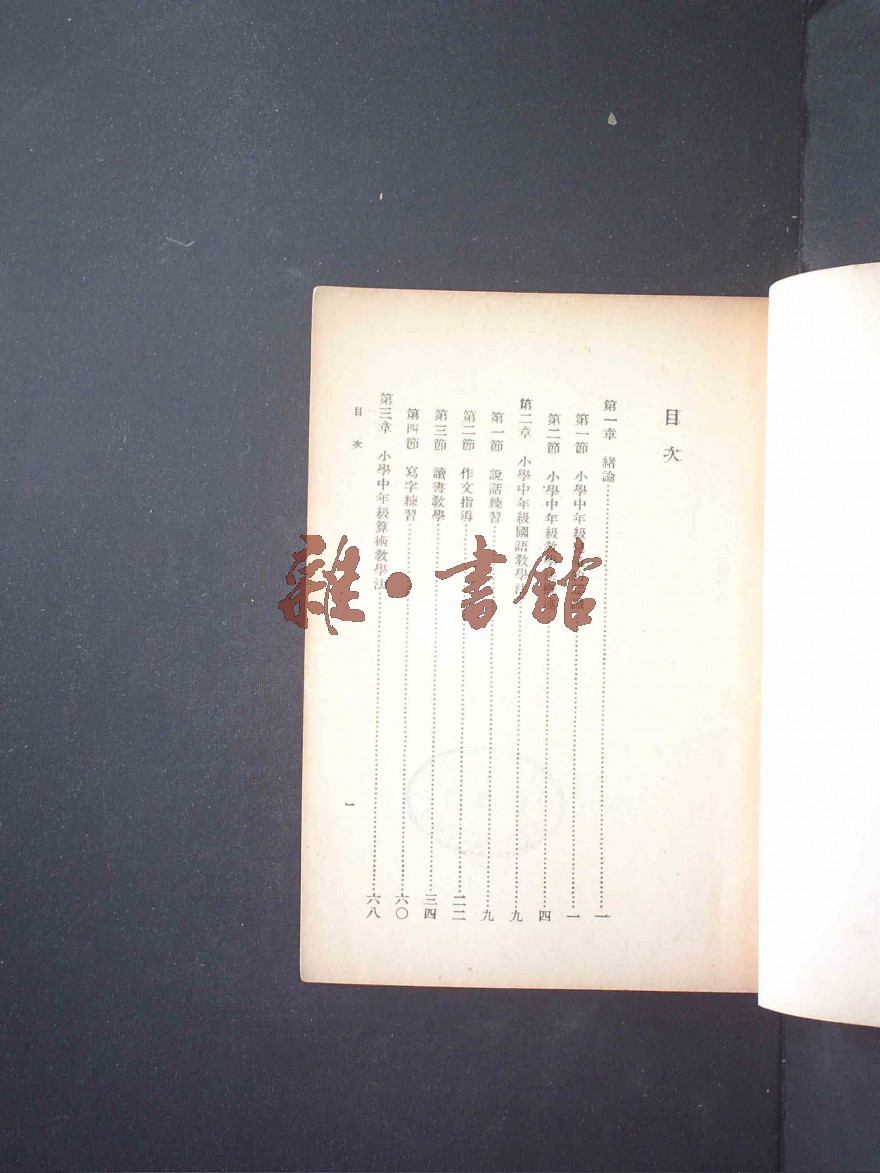 目次
第一章 緒論……一
第一節 小學中年級……一
第二節 小學中年級教……四
第二章 小學中年級國語教學法……九
第一節 說話練習……九
第二節 作文指導……二二
第三節 讀書教學……三四
第四節 寫字練習……六〇
第三章 小學中年級算術教學法……六八
目次
一
雜·書館